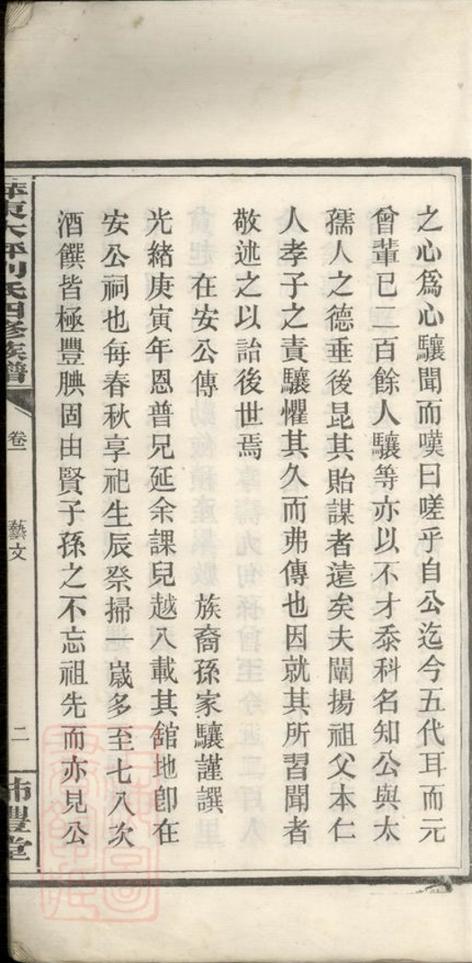 之心為心驤聞而嘆曰嗟乎自公迄今五代耳而元
曾輩已二百餘人驤等亦以不才忝科名知公與太
孺人之德垂後昆其貽謀者遠矣夫闡揚祖父本仁
人孝子之責驤懼其久而弗傳也因就其所習聞者
敬述之以詒後世焉
在安公傳 族裔孫家驤謹譔
光緒庚寅年恩普兄延余課兒越八載其舘地卽在
安公祠也每春秋享祀生辰祭掃一歲多至七八次
酒饌皆極豐腆固由賢子孫之不忘祖先而亦見公
萍東大坪劉氏四修族譜 卷一 藝文 二